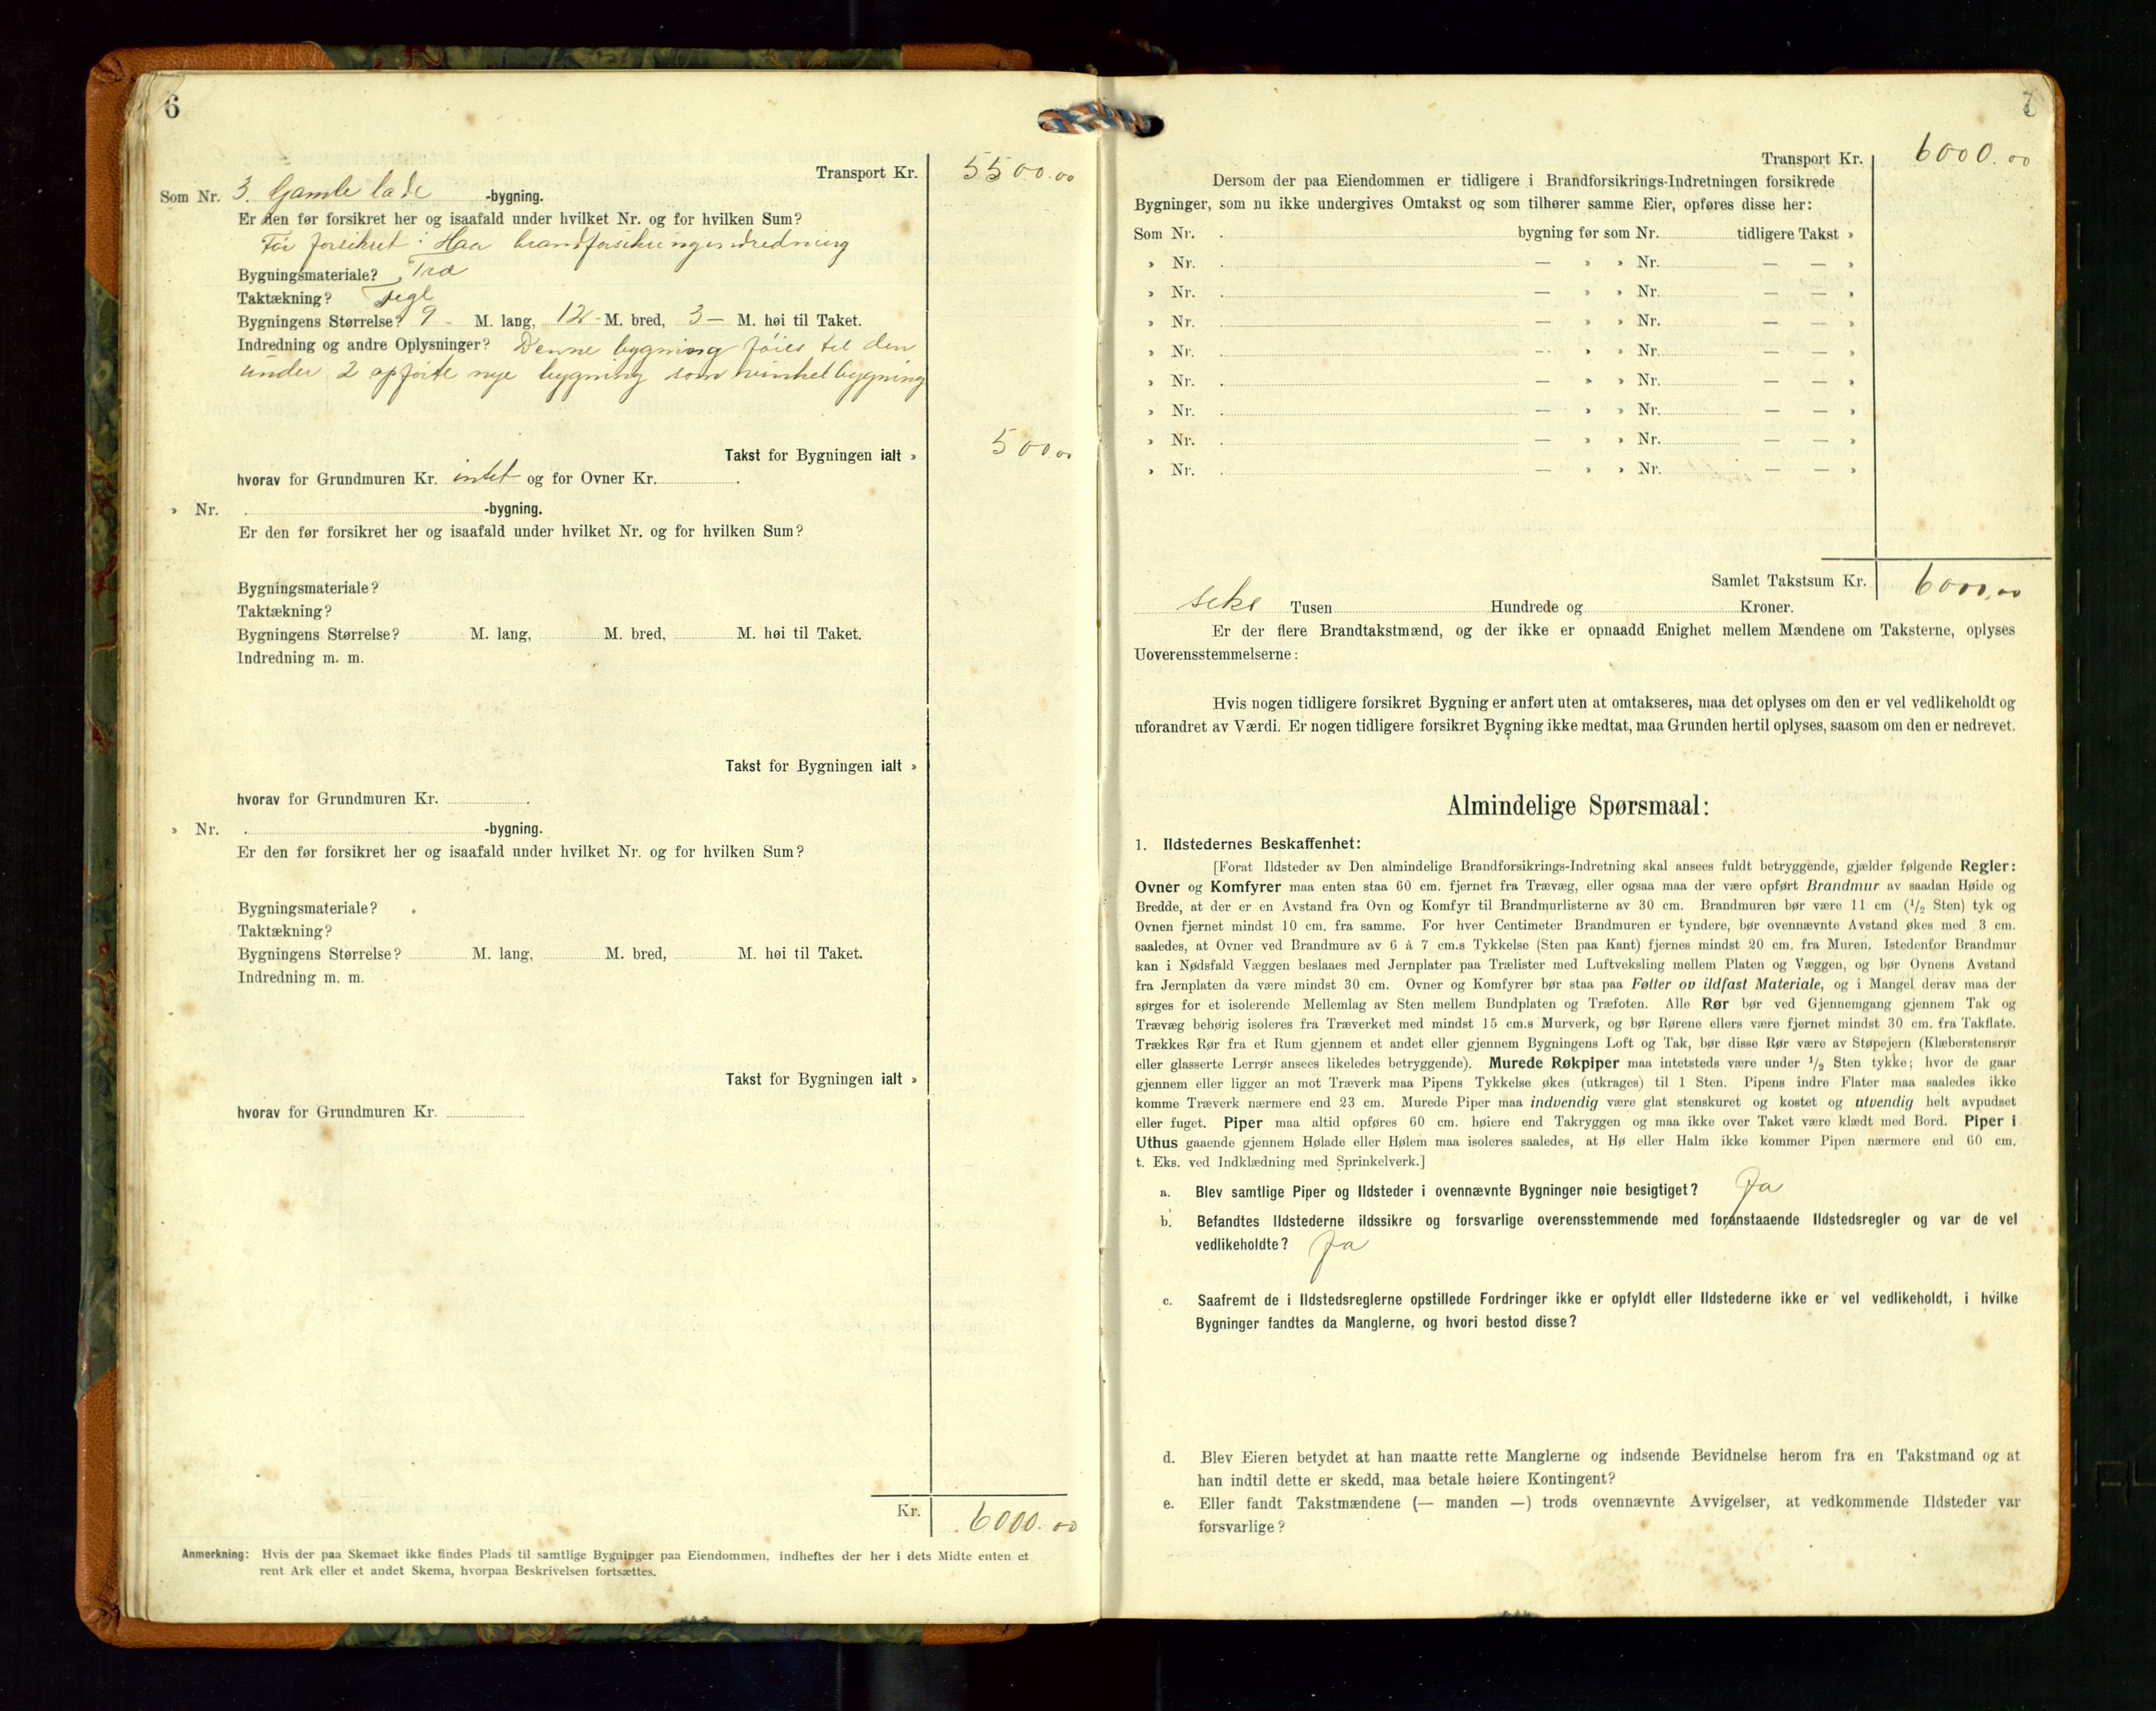 6
Transport Kr. 5500.00
Som Nr. 3. Gamle lade -bygning.
Er den før forsikret her og isaafald under hvilket Nr. og for hvilken Sum?
Før forsikret i Haa brandforsikringsindredning
Bygningsmateriale? Træ
Taktækning? Tegl
Bygningens Størrelse? 9 - M. lang, 12 - M. bred, 3 — M. høi til Taket.
Indredning og andre Oplysninger? Denne bygning føies til den
under 2 opførte nye bygning som vinkelbygning
Takst for Bygningen ialt » 500.00
hvorav for Grundmuren Kr. intet og for Ovner Kr. .
» Nr. . -bygning.
Er den før forsikret her og isaafald under hvilket Nr. og for hvilken Sum?
Bygningsmateriale?
Taktækning?
Bygningens Størrelse? M. lang, M. bred, M. høi til Taket.
Indredning m. m.
Takst for Bygningen ialt »
hvorav for Grundmuren Kr. .
» Nr. . -bygning.
Er den før forsikret her og isaafald under hvilket Nr. og for hvilken Sum?
Bygningsmateriale?
Taktækning?
Bygningens Størrelse? M. lang, M. bred, M. høi til Taket.
Indredning m. m.
Takst for Bygningen ialt »
hvorav for Grundmuren Kr.
Kr. 6000.00
Anmerkning: Hvis der paa Skemaet ikke findes Plads til samtlige Bygninger paa Eiendommen, indheftes der her i dets Midte enten et
rent Ark eller et andet Skema, hvorpaa Beskrivelsen fortsættes.
7
Transport Kr. 6000.00
Dersom der paa Eiendommen er tidligere i Brandforsikrings-Indretningen forsikrede
Bygninger, som nu ikke undergives Omtakst og som tilhører samme Eier, opføres disse her:
Som Nr. . bygning før som Nr. tidligere Takst »
» Nr. . — » » Nr. — — »
» Nr. . — » » Nr. — — »
» Nr. . — » » Nr. — — »
» Nr. . — » » Nr. — — »
» Nr. . — » » Nr. — — »
» Nr. . — » » Nr. — — »
» Nr. . — » » Nr. — — »
» Nr. . — » » Nr. — — »
Samlet Takstsum Kr. 6000,00
seks Tusen Hundrede og Kroner.
Er der flere Brandtakstmænd, og der ikke er opnaadd Enighet mellem Mændene om Taksterne, oplyses
Uoverensstemmelserne:
Hvis nogen tidligere forsikret Bygning er anført uten at omtakseres, maa det oplyses om den er vel vedlikeholdt og
uforandret av Værdi. Er nogen tidligere forsikret Bygning ikke medtat, maa Grunden hertil oplyses, saasom om den er nedrevet.
Almindelige Spørsmaal:
1. Ildstedernes Beskaffenhet:
[Forat Ildsteder av Den almindelige Brandforsikrings-Indretning skal ansees fuldt betryggende, gjælder følgende Regler:
Ovner og Komfyrer maa enten staa 60 cm. fjernet fra Trævæg, eller ogsaa maa der være opført Brandmur av saadan Høide og
Bredde, at der er en Avstand fra Ovn og Komfyr til Brandmurlisterne av 30 cm. Brandmuren bør være 11 cm (1/2 Sten) tyk og
Ovnen fjernet mindst 10 cm. fra samme. For hver Centimeter Brandmuren er tyndere, bør ovennævnte Avstand økes med 3 cm.
saaledes, at Ovner ved Brandmure av 6 à 7 cm.s Tykkelse (Sten paa Kant) fjernes mindst 20 cm. fra Muren. Istedenfor Brandmur
kan i Nødsfald Væggen beslaaes med Jernplater paa Trælister med Luftveksling mellem Platen og Væggen, og bør Ovnens Avstand
fra Jernplaten da være mindst 30 cm. Ovner og Komfyrer bør staa paa Føtter ov ildfast Materiale, og i Mangel derav maa der
sørges for et isolerende Mellemlag av Sten mellem Bundplaten og Træfoten. Alle Rør bør ved Gjennemgang gjennem Tak og
Trævæg behørig isoleres fra Træverket med mindst 15 cm.s Murverk, og bør Rørene ellers være fjernet mindst 30 cm. fra Takflate.
Trækkes Rør fra et Rum gjennem et andet eller gjennem Bygningens Loft og Tak, bør disse Rør være av Støpejern (Klæberstensrør
eller glasserte Lerrør ansees likeledes betryggende). Murede Røkpiper maa intetsteds være under 1/2 Sten tykke; hvor de gaar
gjennem eller ligger an mot Træverk maa Pipens Tykkelse økes (utkrages) til 1 Sten. Pipens indre Flater maa saaledes ikke
komme Træverk nærmere end 23 cm. Murede Piper maa indvendig være glat stenskuret og kostet og utvendig helt avpudset
eller fuget. Piper maa altid opføres 60 cm. høiere end Takryggen og maa ikke over Taket være klædt med Bord. Piper i
Uthus gaaende gjennem Hølade eller Hølem maa isoleres saaledes, at Hø eller Halm ikke kommer Pipen nærmere end 60 cm.
t. Eks. ved Indklædning med Sprinkelverk.]
a. Blev samtlige Piper og Ildsteder i ovennævnte Bygninger nøie besigtiget? Ja
b. Befandtes Ildstederne ildssikre og forsvarlige overensstemmende med foranstaaende Ildstedsregler og var de vel
vedlikeholdte? Ja
c. Saafremt de i Ildstedsreglerne opstillede Fordringer ikke er opfyldt eller Ildstederne ikke er vel vedlikeholdt, i hvilke
Bygninger fandtes da Manglerne, og hvori bestod disse?
d. Blev Eieren betydet at han maatte rette Manglerne og indsende Bevidnelse herom fra en Takstmand og at
han indtil dette er skedd, maa betale høiere Kontingent?
e. Eller fandt Takstmændene (— manden —) trods ovennævnte Avvigelser, at vedkommende Ildsteder var
forsvarlige?